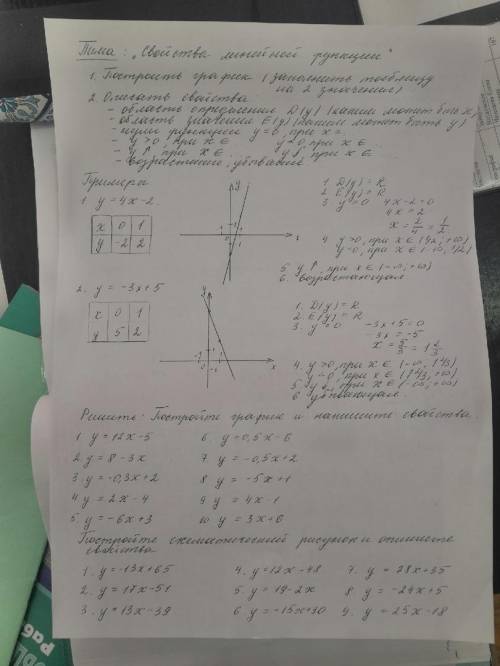 Тема: „Свойства линейной функции"
1. Построить график (заполнить таблицу
на 2 значения)
2. Описать свойства
- область определения D(y) (каким может быть x)
- область значений E(y) (каким может быть y)
- нули функции y=0, при x=
- y>0, при x∈ y<0, при x∈
- y↑, при x∈ y↓, при x∈
- возрастание, убывание
Примеры
1. y=4x-2.
x 0 1
y -2 2
1. D(y)=R
2. E(y)=R
3. y=0 4x-2=0
4x=2
x=2/4=1/2
4. y>0, при x∈(1/2; +∞)
y<0, при x∈(-∞; 1/2)
5. y↑, при x∈(-∞; +∞)
6. возрастающая
2. y=-3x+5
x 0 1
y 5 2
1. D(y)=R
2. E(y)=R
3. y=0 -3x+5=0
-3x=-5
x=5/3=1 2/3
4. y>0, при x∈(-∞; 1 2/3)
y<0, при x∈(1 2/3; +∞)
5. y↓, при x∈(-∞; +∞)
6. убывающая.
Решить: Постройте график и напишите свойства.
1. y=12x-5 6. y=0,5x-6
2. y=8-3x 7. y=-0,5x+2
3. y=-0,3x+2 8. y=-5x+1
4. y=2x-4 9. y=4x-1
5. y=-6x+3 10. y=3x+6
Постройте схематический рисунок и опишите
свойства
1. y=-13x+65 4. y=12x-48 7. y=28x+35
2. y=17x-51 5. y=19-2x 8. y=-24x+5
3. y=13x-39 6. y=-15x+30 9. y=25x-18